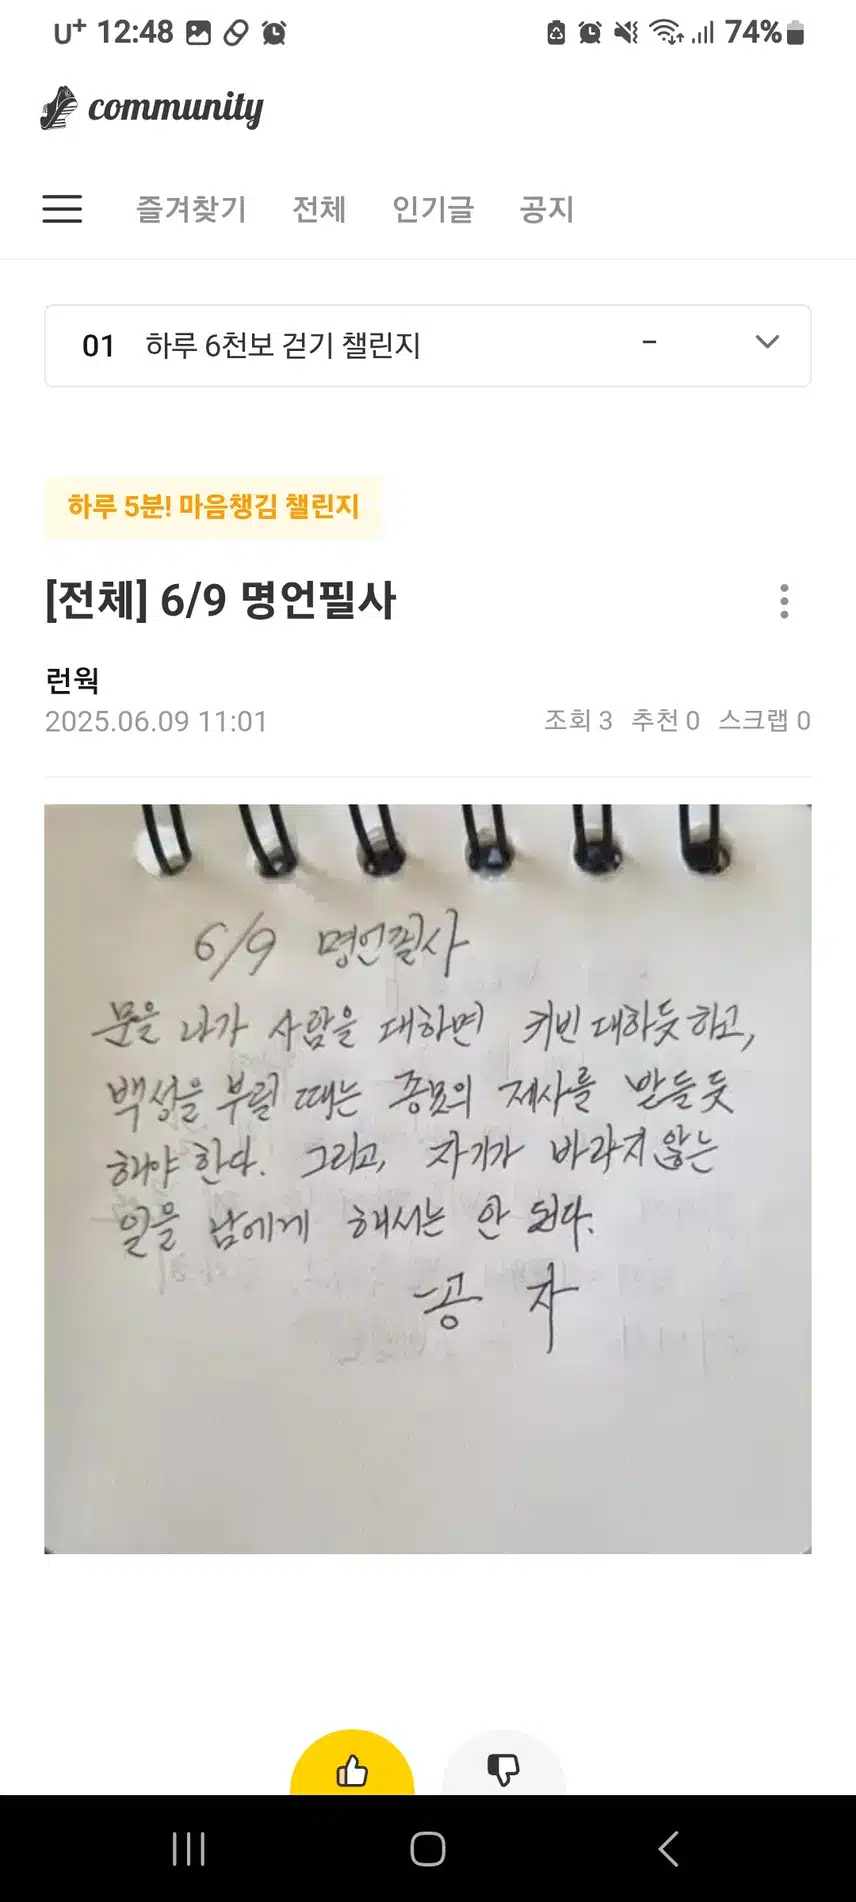 U+ 12:48 74%
community
즐겨찾기 전체 인기글 공지
01 하루 6천보 걷기 챌린지 -
하루 5분! 마음챙김 챌린지
[전체] 6/9 명언필사
런웍
2025.06.09 11:01 조회 3 추천 0 스크랩 0
6/9 명언필사
문을 나가 사람을 대하면 귀빈 대하듯 하고,
백성을 부릴 때는 종묘의 제사를 받들듯
해야 한다. 그리고, 자기가 바라지 않는
일을 남에게 해서는 안 된다.
공 자